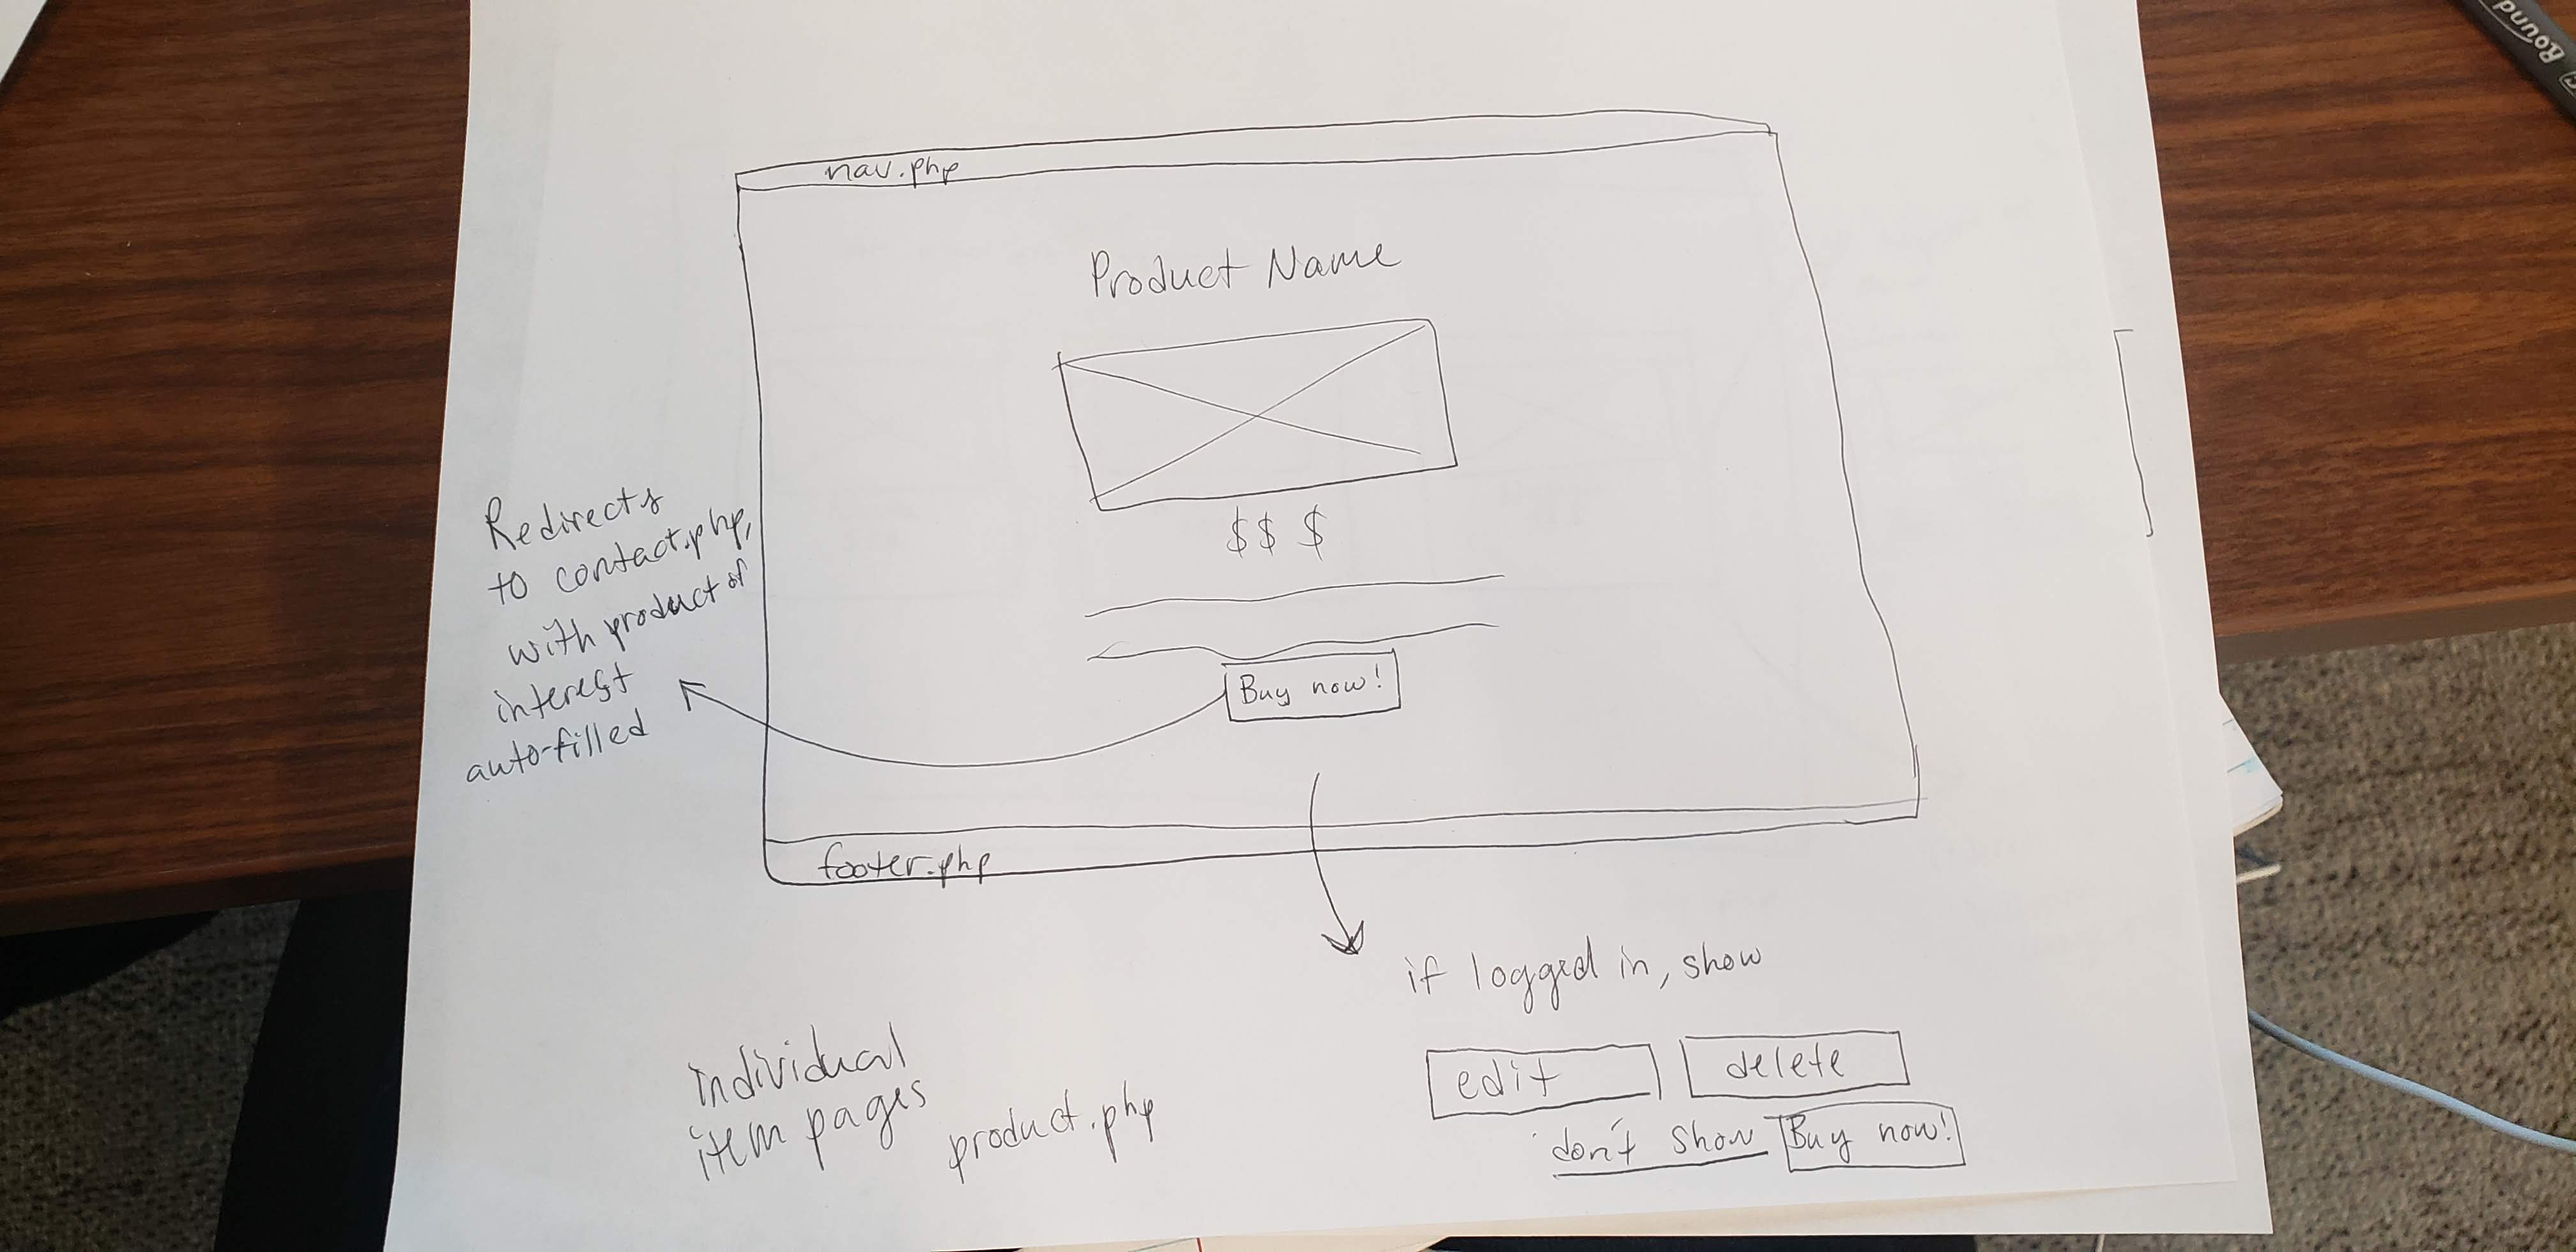 nav.php
Product Name
$$ $
Buy now!
footer.php
Redirects
to contact.php,
with product of
interest
auto-filled
if logged in, show
edit delete
don't show Buy now!
individual
item pages
product.php
Round